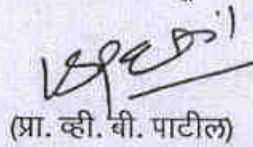 (प्रा. व्ही. बी. पाटील)